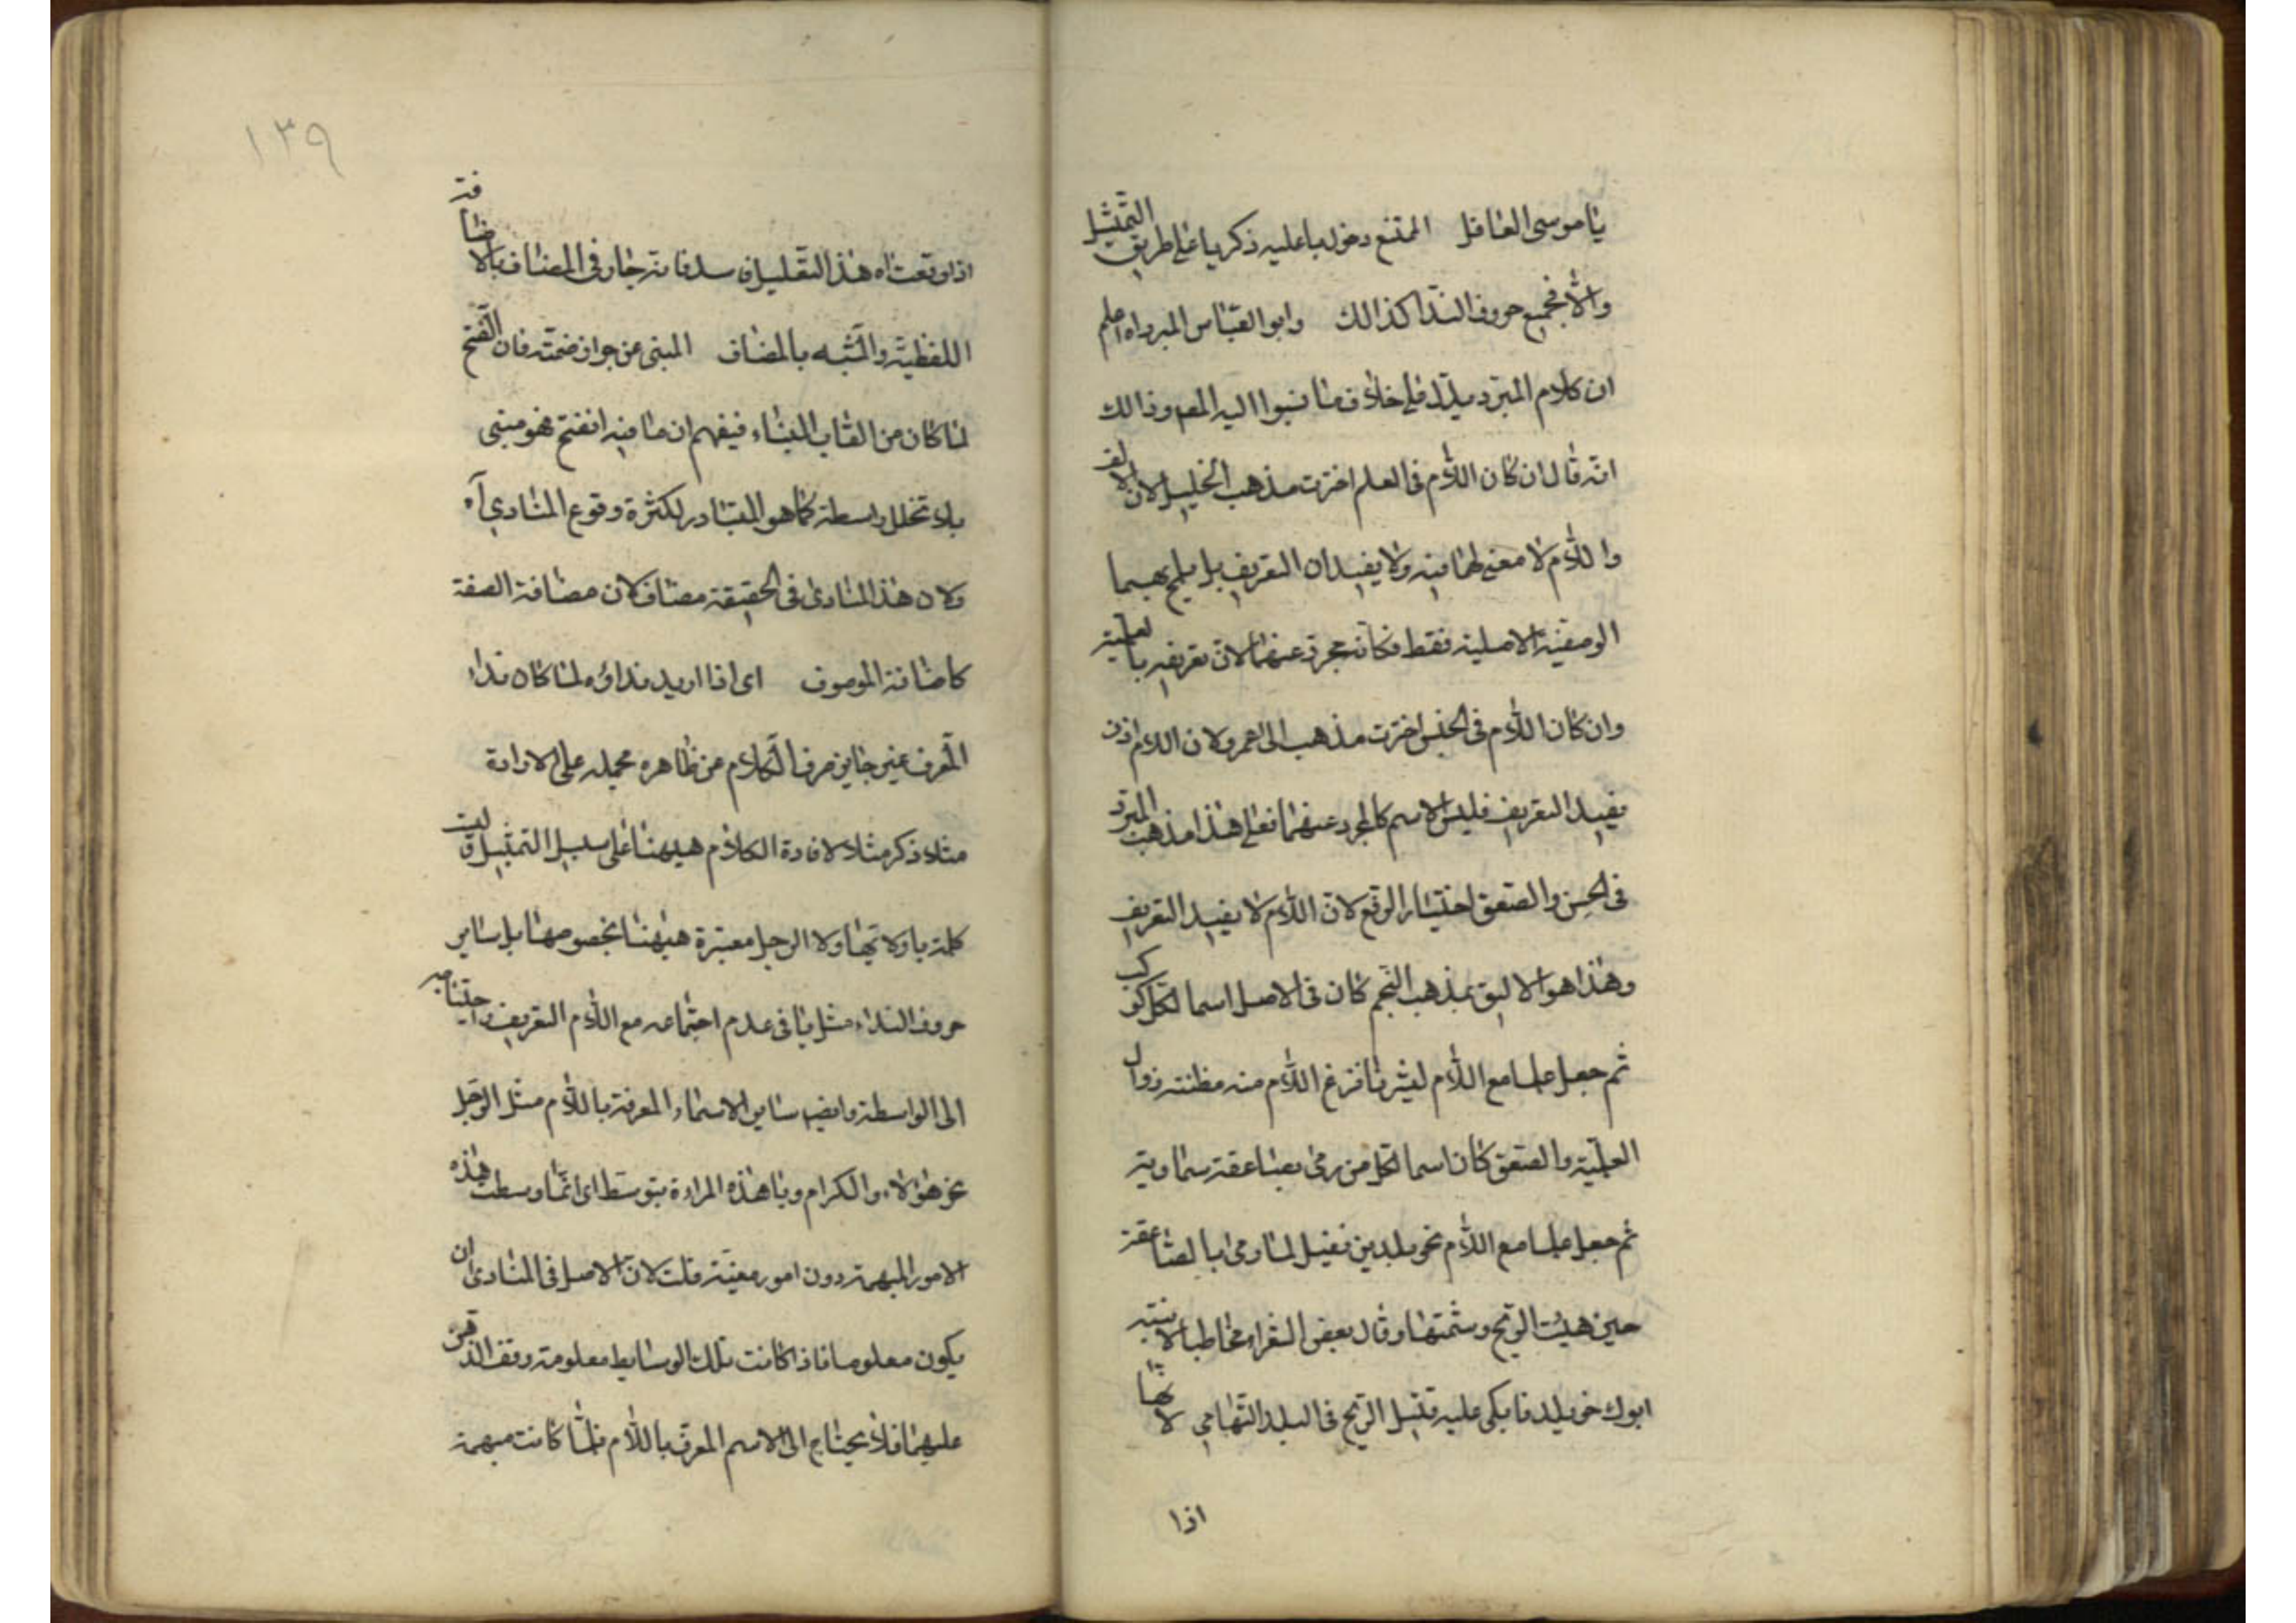 يا موسى العاقل الممتنع دخول يا عليه ذكر يا على طريق التمثيل
والا فجميع حروف الندا كذالك وابو العباس المبرد اه اعلم
ان كلام المبرد يدل على خلاف ما نسبوا اليه المصـ وذالك
انه قال ان كان اللام في العلم اخترت مذهب الخليل لان الالف
واللام لا معنى لهما فيه ولا يفيدان التعريف بل يلمح بهما
الوصفية الاصلية فقط فكانه مجرد عنهما لان تعريفه بالعلمية
وان كان اللام في الجنس اخترت مذهب ابى عمرو لان اللام اذن
يفيد التعريف فليس الاسم كالمجرد عنهما فعلى هذا مذهب المبرد
في الحسن والصعق اختيار الرفع لان اللام لا يفيد التعريف
وهذا هو الاليق بمذهب النجم كان في الاصل اسما لكل كوكب
ثم جعل علما مع اللام لثريا فنزع اللام منه مظنته زوال
العلمية والصعق كان اسما لكل من رمى بصاعقة سماوية
ثم جعل علما مع اللام نحو يلد بن نفيل لما رمى بالصاعقة
حين هبت الريح وشتمتها وقال بعض الشعراء مخاطبا لابنته
ابوك خويلد فابكى عليه قتيل الريح في البلد التهامي لانها
اذا
١٣٩
اذا وقعت اه هذا التعليل ان سلم فانه جار في المضاف بالاضافة
اللفظية والمشبه بالمضاف المبنى عن جواز ضمته فان الفتح
لما كان من القاب البناء فيفهم ان ما فيه انفتح فهو مبنى
بلا تخلل واسطة كما هو المتبادر لكثرة وقوع المنادي آه
ولان هذا المنادى في الحقيقة مضاف لان مضافة الصفة
كاضافة الموصوف اى اذا اريد نداؤه لما كان نداء
المعرف غير جايز صرف الكلام عن ظاهره بحمله على الارادة
مثلا ذكر مثلا لافادة الكلام هيهنا على سبيل التمثيل وليست
كلمة يا ولا ايها ولا الرجل معتبرة هيهنا بخصوصها بل ساير
حروف النداء مثل يا في عدم اجتماعه مع اللام التعريف واحتياجه
الى الواسطة وايضـ ساير الاسماء المعرفة باللام مثل الرجل
نحو هؤلاء والكرام ويا هذه المراءة بتوسط اى انما وسطت هذه
الامور المبهمة دون امور معينة قلت لان الاصل في المنادى ان
يكون معلوما فاذا كانت تلك الوسايط معلومة وقف الذهن
عليهما فلا يحتاج الى الاسم المعرف باللام فلما كانت مبهمة